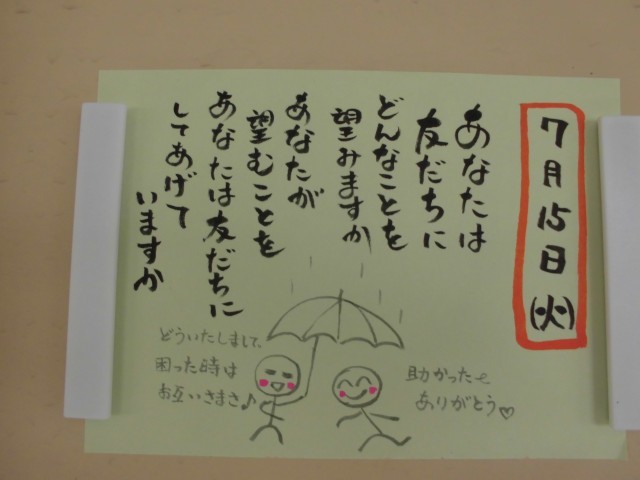 7月15日(火)
あなたは
友だちに
どんなことを
望みますか
あなたが
望むことを
あなたは友だちに
してあげて
いますか
どういたしまして、
困った時は
お互いさまさ♪
助かったぜ
ありがとう♡